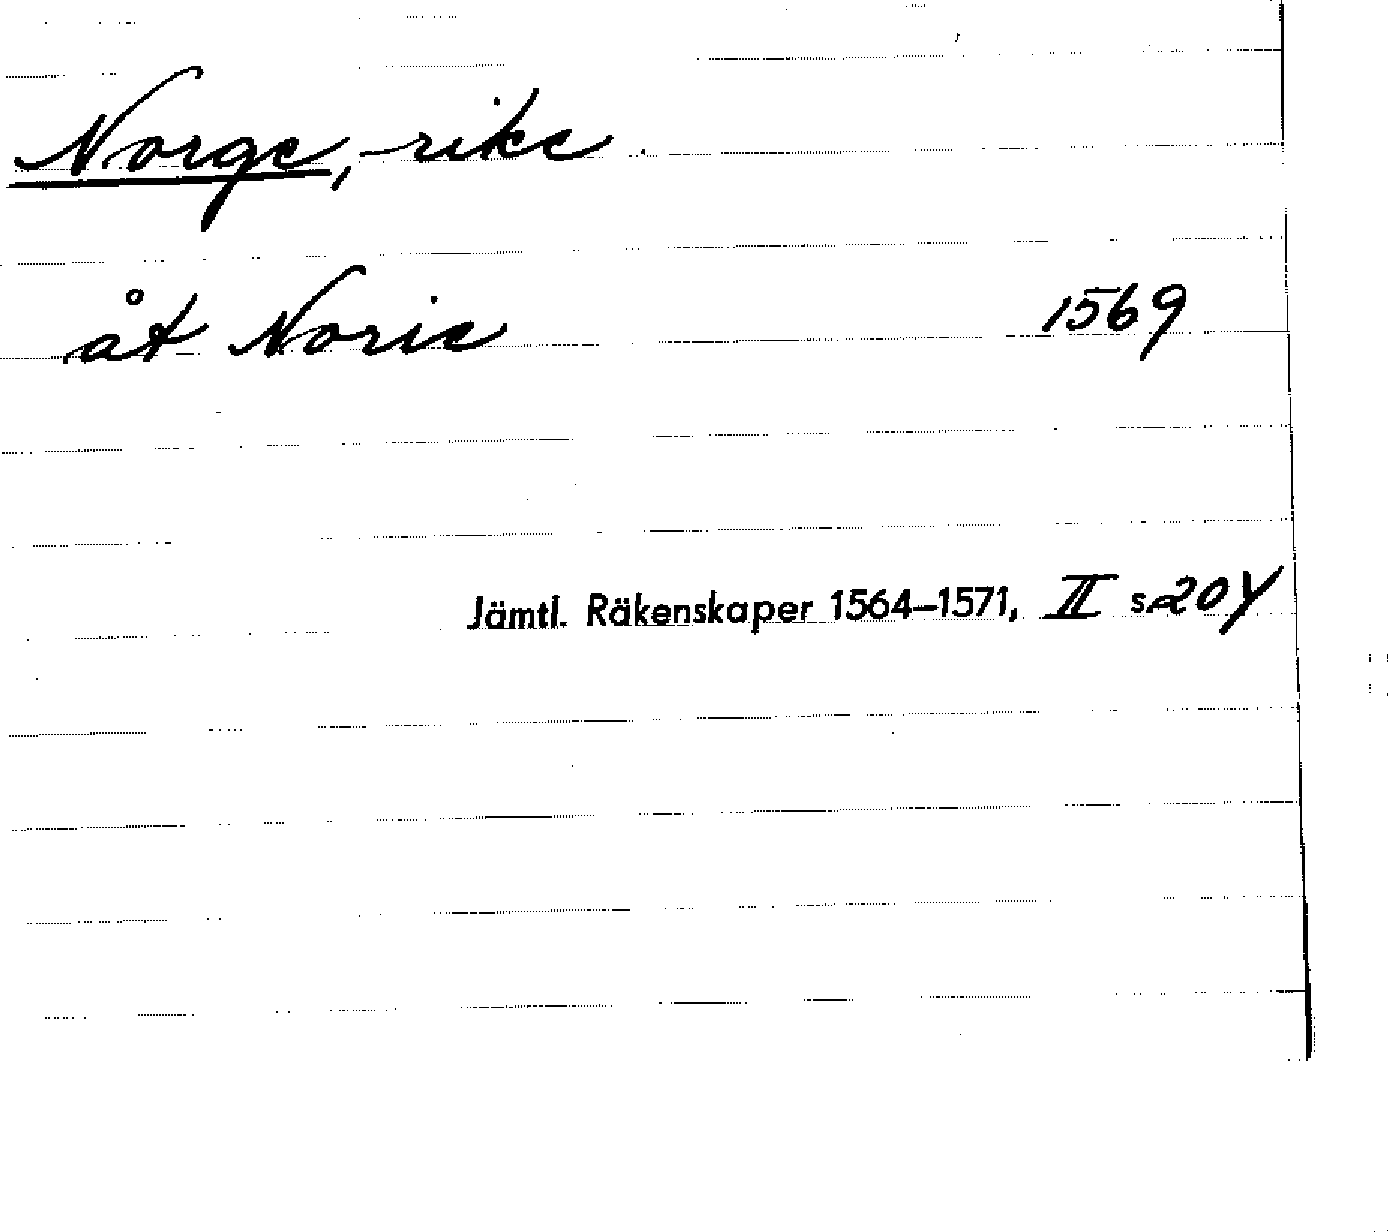 Norge, rike
åt Norie 1569
Jämtl. Räkenskaper 1564–1571, II s 204